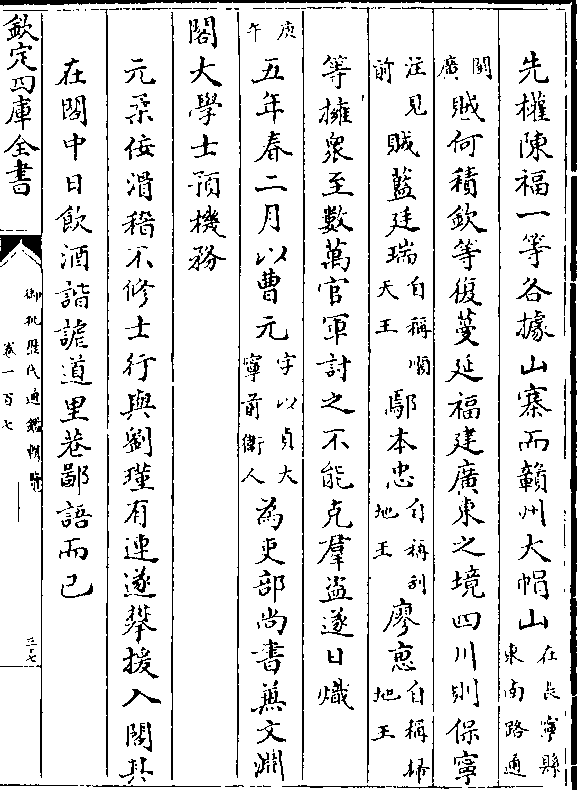 先權陳福一等各據山寨而贛州大帽山在長寧縣東南路通
閩廣賊何積欽等復蔓延福建廣東之境四川則保寧
注見前賊藍廷瑞自稱順天王鄢本忠自稱刮地王廖惠自稱掃地王
等擁衆至數萬官軍討之不能克羣盜遂日熾
庚午五年春二月以曹元字以貞大寧前衛人為吏部尚書兼文淵
閣大學士預機務
元柔佞滑稽不修士行與劉瑾有連遂攀援入閣其
在閣中日飲酒諧謔道里巷鄙語而已
欽定四庫全書
御批歷代通鑑輯覽
卷一百七
三十七